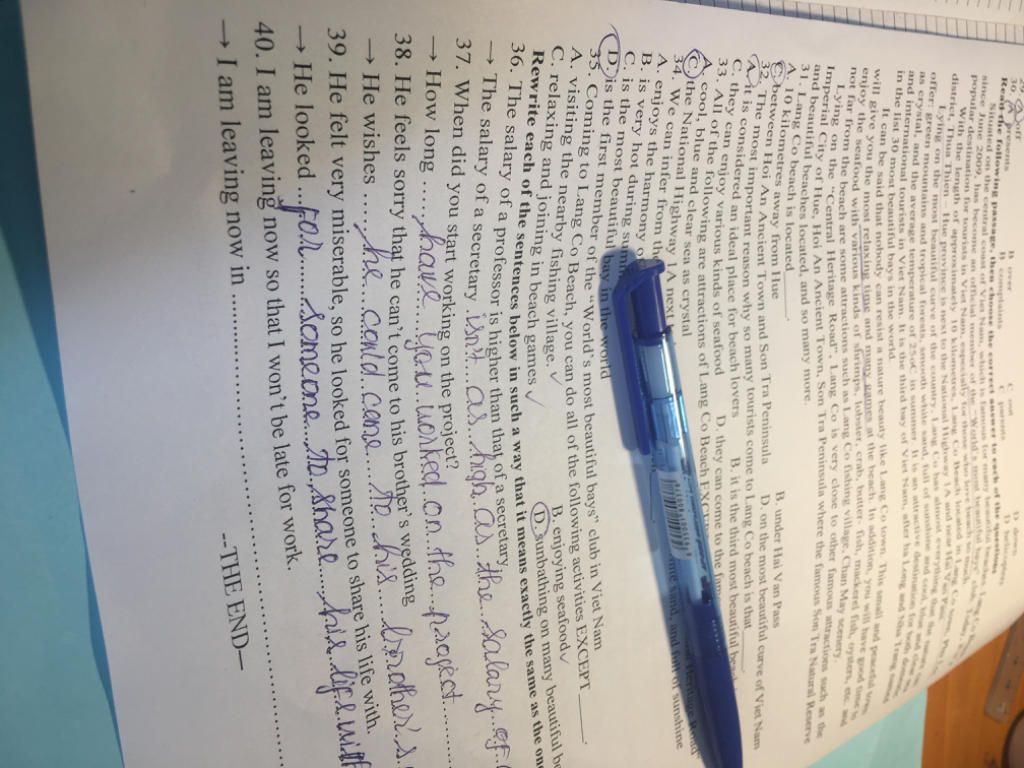 30.
A. presents B. complaints C. parents
Read the following passage, then choose the correct answer to each of the questions
Situated on the central coast of Viet Nam, which is famous for many beautiful beaches, Lang Co
since June 2009, has become an official member of the "World's most beautiful bays" club. Today,
popular destination for tourists in Viet Nam, especially for those who love beach
With the length of approximately 10 kilometres, Lang Co Beach located in Lang Co town, Phu
district, Thua Thien – Hue province is next to the National Highway 1A and near Hai Van Pass.
Lying on the most beautiful curve of the country, Lang Co has almost everything that the nature
offer: green mountains and tropical forests, smooth white sand, full of sunshine and cool, blue and clear sea
as crystal, and the average temperature of 25°C in summer. It is an attractive destination for both domestic
and international tourists in Viet Nam. It is the third bay of Viet Nam, after Ha Long and Nha Trang named
in the list 30 most beautiful bays in the world.
It can be said that nobody can resist a nature beauty like Lang Co town. This small and peaceful town
will give you the most relaxing time and many games at the beach. In addition, you will have good time to
enjoy the seafood with various kinds of shrimps, lobster, crab, butter- fish, mackerel fish, oysters, etc. and
not far from the beach are some attractions such as Lang Co fishing village, Chan May scenery.
Lying on the "Central Heritage Road", Lang Co is very close to other famous attractions such as the
Imperial City of Hue, Hoi An Ancient Town, Son Tra Peninsula where the famous Son Tra Natural Reserve
and beautiful beaches located, and so many more.
31. Lang Co beach is located______.
A. 10 kilometres away from Hue B. under Hai Van Pass
C. between Hoi An Ancient Town and Son Tra Peninsula D. on the most beautiful curve of Viet Nam
32. The most important reason why so many tourists come to Lang Co beach is that______
A. it is considered an ideal place for beach lovers B. it is the third most beautiful
C. they can enjoy various kinds of seafood D. they can come to the
33. All of the following are attractions of Lang Co Beach
A. cool, blue and clear sea as crystal
C. the National Highway 1A next sand, and full of sunshine
34. We can infer from the
A. enjoys the harmony
B. is very hot during
C. is the most beautiful bay in the world
D. is the first member of the "World's most beautiful bays" club in Viet Nam
35. Coming to Lang Co Beach, you can do all of the following activities EXCEPT______.
A. visiting the nearby fishing village. ✓ B. enjoying seafood ✓
C. relaxing and joining in beach games ✓ D. sunbathing on many beautiful
Rewrite each of the sentences below in such a way that it means exactly the same as the
36. The salary of a professor is higher than that of a secretary.
→ The salary of a secretary isn't as high as the salary of
37. When did you start working on the project?
→ How long .... have you worked on the project ..........
38. He feels sorry that he can't come to his brother's wedding
→ He wishes ...... he could come to his brother's
39. He felt very miserable, so he looked for someone to share his life with.
→ He looked ... for ..... someone to share his life with
40. I am leaving now so that I won't be late for work.
→ I am leaving now in ..........................................
--THE END--